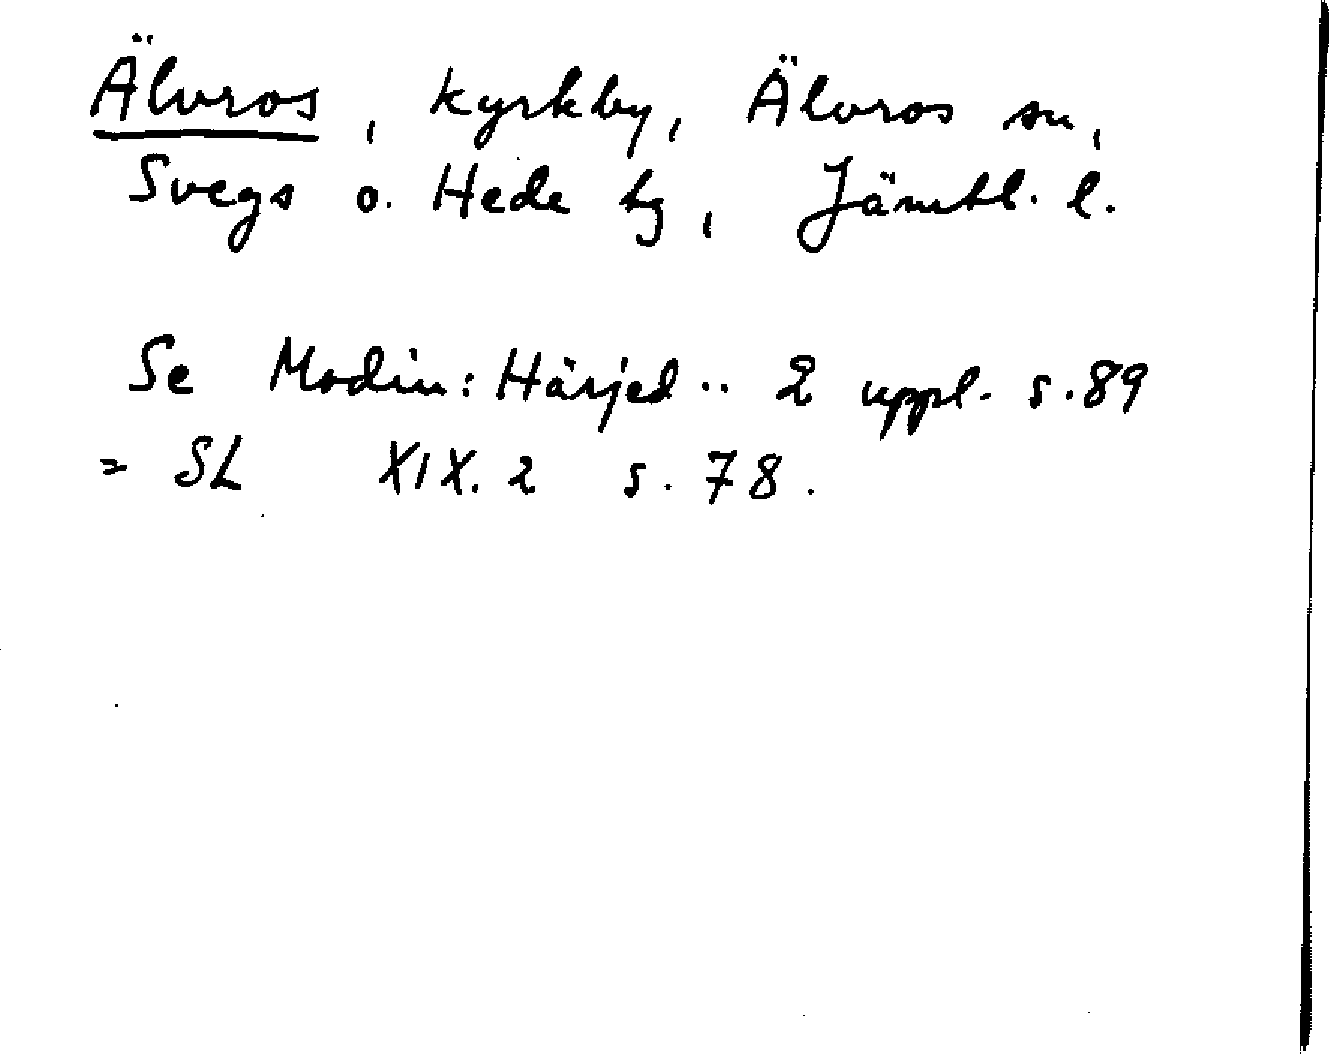 Älvros, kyrkby, Älvros sn,
Svegs o. Hede tg, Jämtl. l.
Se Modin: Härjed.. 2 uppl. s. 89
= SL XIX. 2 s. 78.